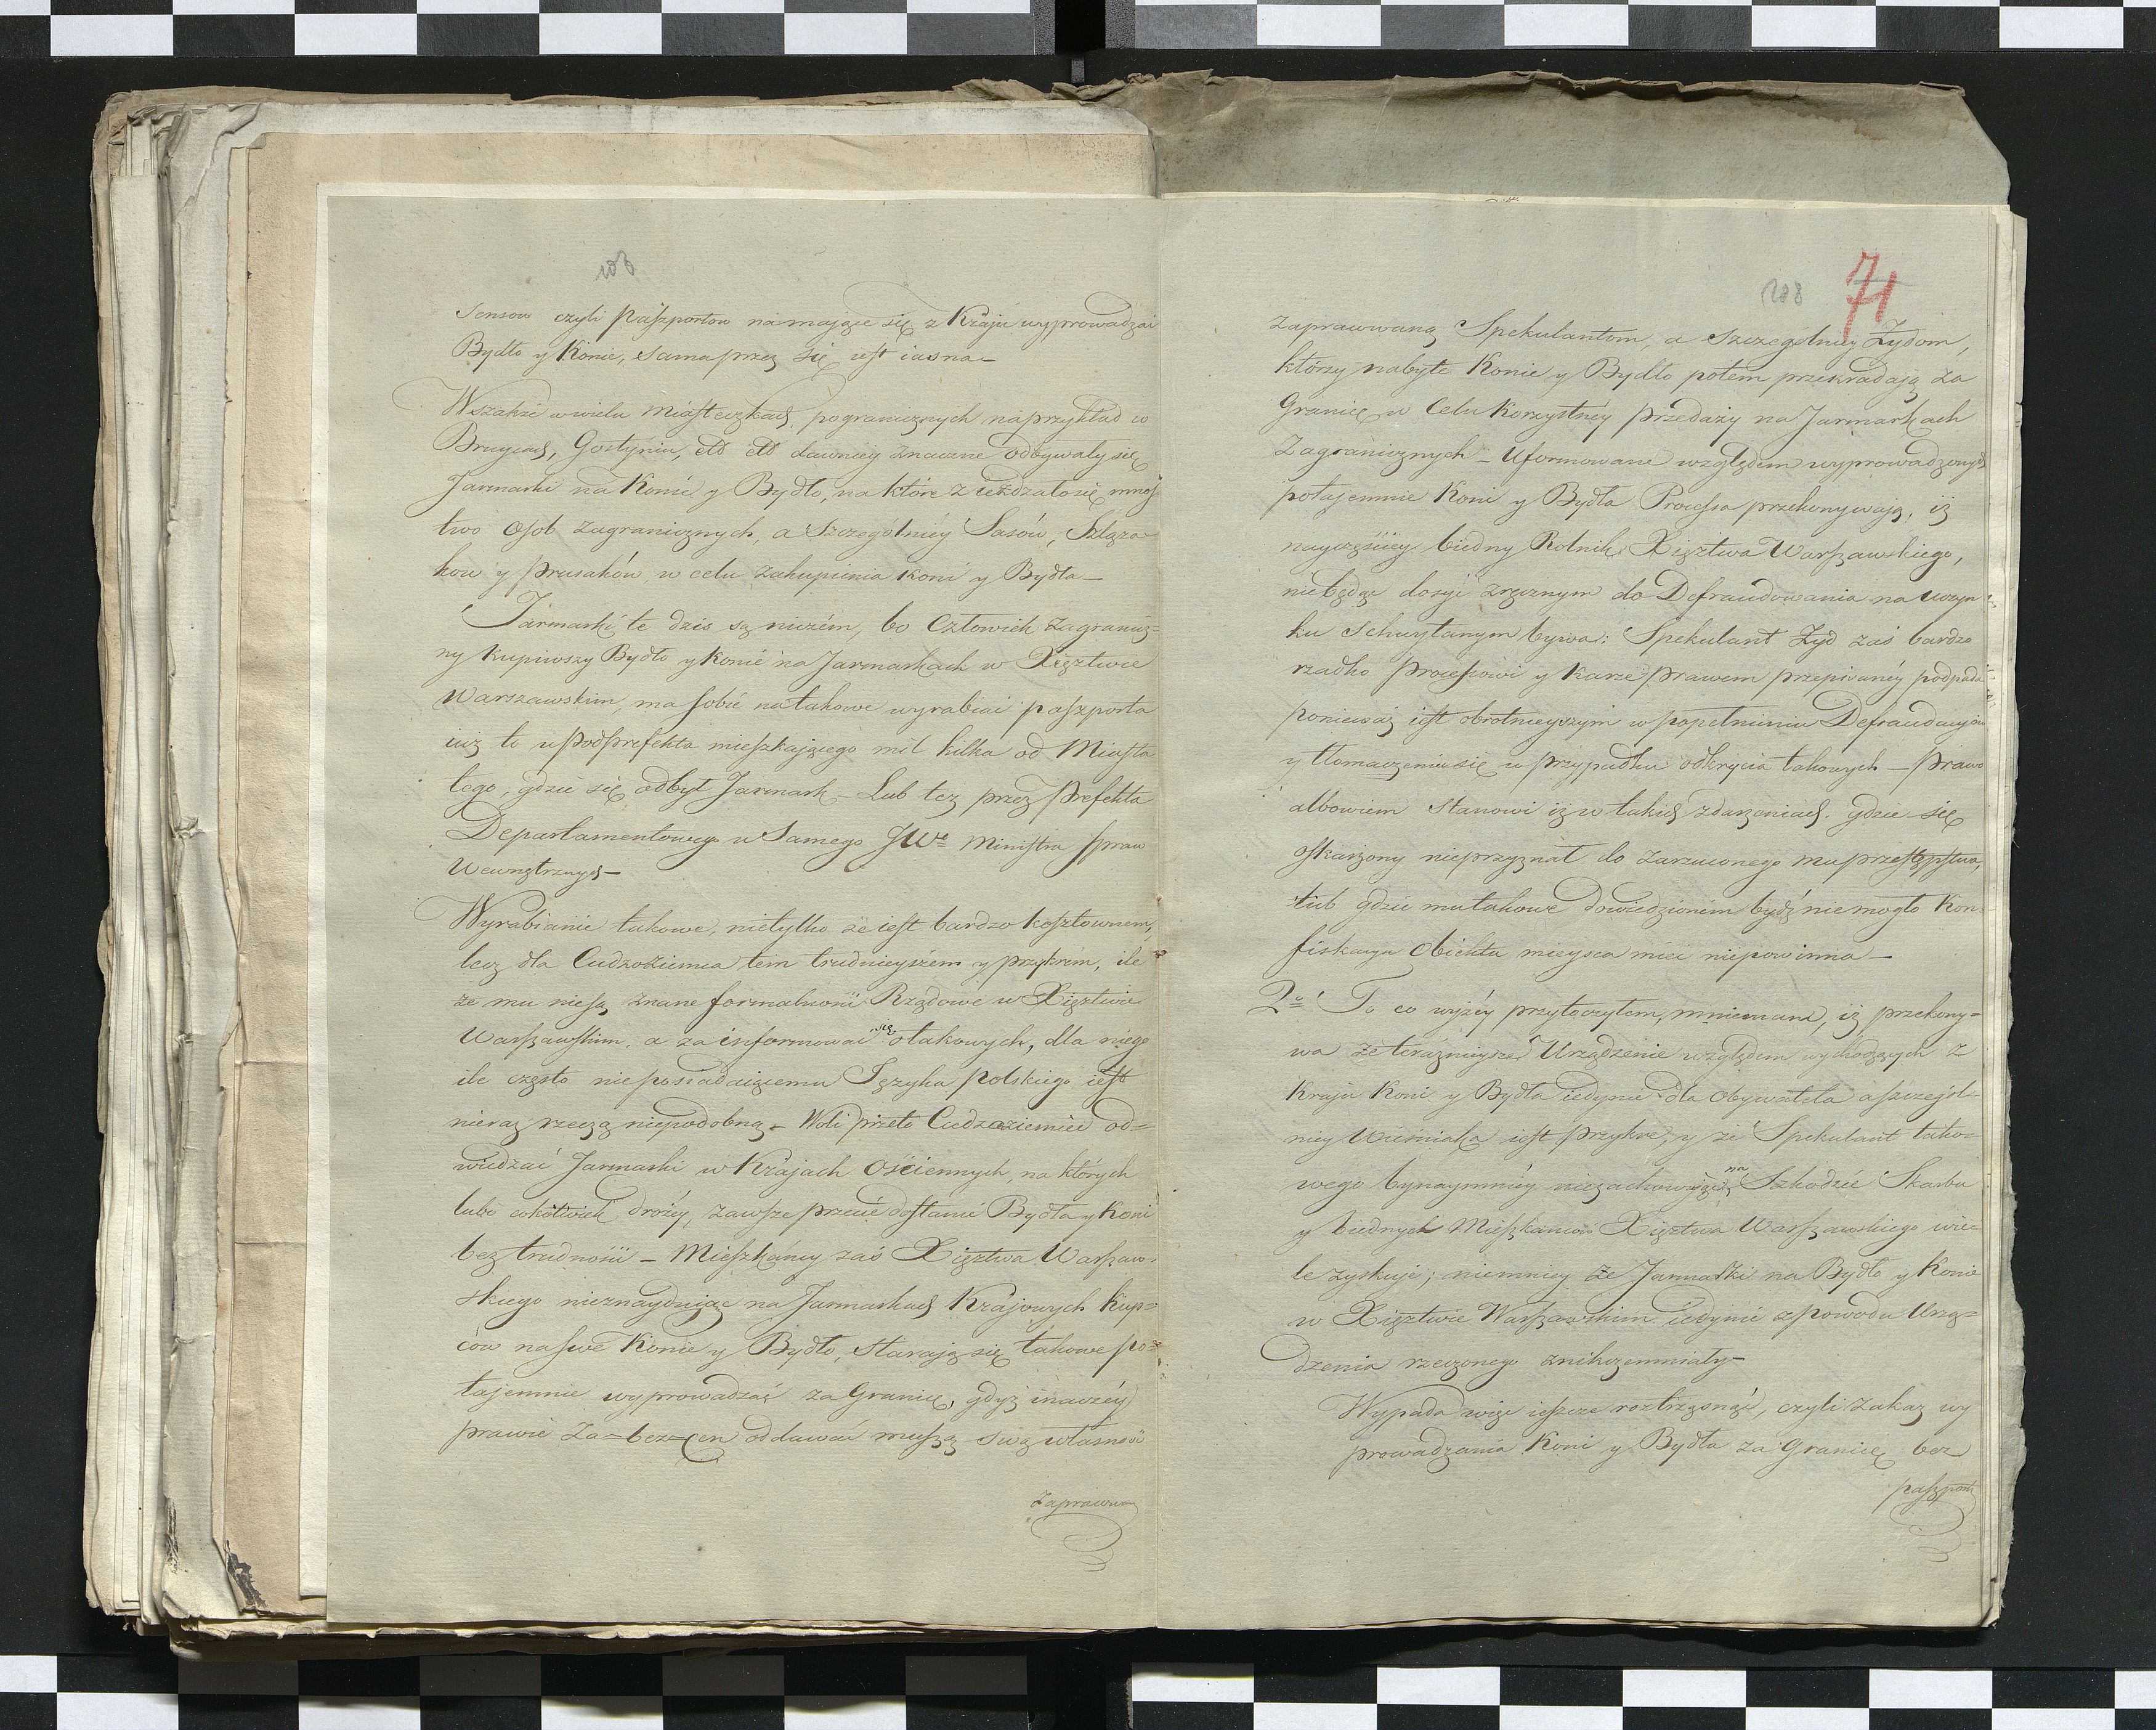 sensow czyli Paszportow na mające się z Kraju wyprowadzać
Bydło y Konie, sama przez się iest iasna —
Wszakże w wielu Miasteczkach pogranicznych naprzykład w
Gostyniu, etc etc dawniey znaczne odbywały się
Jarmarki na Konie y Bydło, na które zieżdzało się mnós
two Osob zagranicznych, a Szczegolniéy Sasów, Szląza-
kow y Prusaków, w celu zakupienia Koni y Bydła —
Jarmarki te dzis są niczém, bo Człowiek zagranicz=
ny kupiwszy Bydło y Konie na Jarmarkach w Xięztwie
Warszawskim, ma sobie na takowe wyrabiać paszporta
iuż to u Podprefekta mieszkaiącego mil kilka od Miasta
tego, gdzie się odbył Jarmark — Lub tez, przez Prefekta
Departamentowego u Samego JWo Ministra spraw
Wewnętrznych —
Wyrabianie takowe, nietylko że iest bardzo kosztownem,
lecz dla Cudzoziemca tem trudnieyszém y przykrém, ile
że mu niesą znane formalności Rządowe w Xięztwie
Warszawskim, a zainformować się o takowych, dla niego
ile często nieposiadaiącemu Języka polskiego iest
nieraz rzeczą niepodobną — Woli przeto Cudzoziemiec od=
wiedzać Jarmarki w Krajach Ościennych, na których
lubo cokolwiek drożéy, zawsze przecie dostanie Bydła y Koni
bez trudności — Mieszkańcy zaś Xięztwa Warszaw-
skiego nieznayduiąc na Jarmarkach Krajowych Kup=
ców na swe Konie y Bydło, starają się takowe po=
tajemnie wyprowadzać za Granicę, gdyż inaczéy
prawie Za=bez=cen oddawać muszą swą własność
Zaprawną
108 71
zaprawwaną Spekulantom, a Szczegolniey Żydom,
którzy nabyte Konie y Bydło potem przekradają za
Granicę w Celu Korzystnéy przedaży na Jarmarkach
Zagranicznych — Uformowane względem wyprowadzonych
potajemnie Koni y Bydła Processa przekonywają, iż
nayczęściéy biedny Rolnik Xięztwa Warszawskiego,
niebędąc dosyć zręcznym do Defraudowania na uczyn
ku schwytanym bywa: Spekulant Żyd zaś bardzo
rzadko processowi y Karze prawem przepisanéy podpada
ponieważ iest obrotnieyszym w popełnieniu Defraudacyów
y tłomaczeniu się w przypadku odkrycia takowych — prawo
albowiem stanowi iż w takich zdarzeniach gdzie się
oskarżony nieprzyznał do zarzuconego mu przestępstwa,
lub gdzie mu takowe dowiedzionem bydź niemogło Kon-
fiskacya Obiektu mieysca mieć niepowinna —
2o To co wyżéy przytoczyłem, mniemam, iż przekony=
wa że teraznieysze Urządzenie względem wychodzących z
Kraju Koni y Bydła iedynie dla Obywatela a szczegól-
niey Wieśniaka iest przykre, y że Spekulant tako=
wego bynaymniéy niezachowuiąc, na Szkodzie Skarbu
y biednych Mieszkańców Xięztwa Warszawskiego wie=
le zyskuje; niemniey że Jarmarki na Bydło y Konie
w Xięztwie Warszawskim iedynie z powodu Urzą=
dzenia rzeczonego znikczemniały —
Wypada więc ieszcze roztrząsnąć, czyli zakaz wy
prowadzania Koni y Bydła za Granicę bez
paszportu